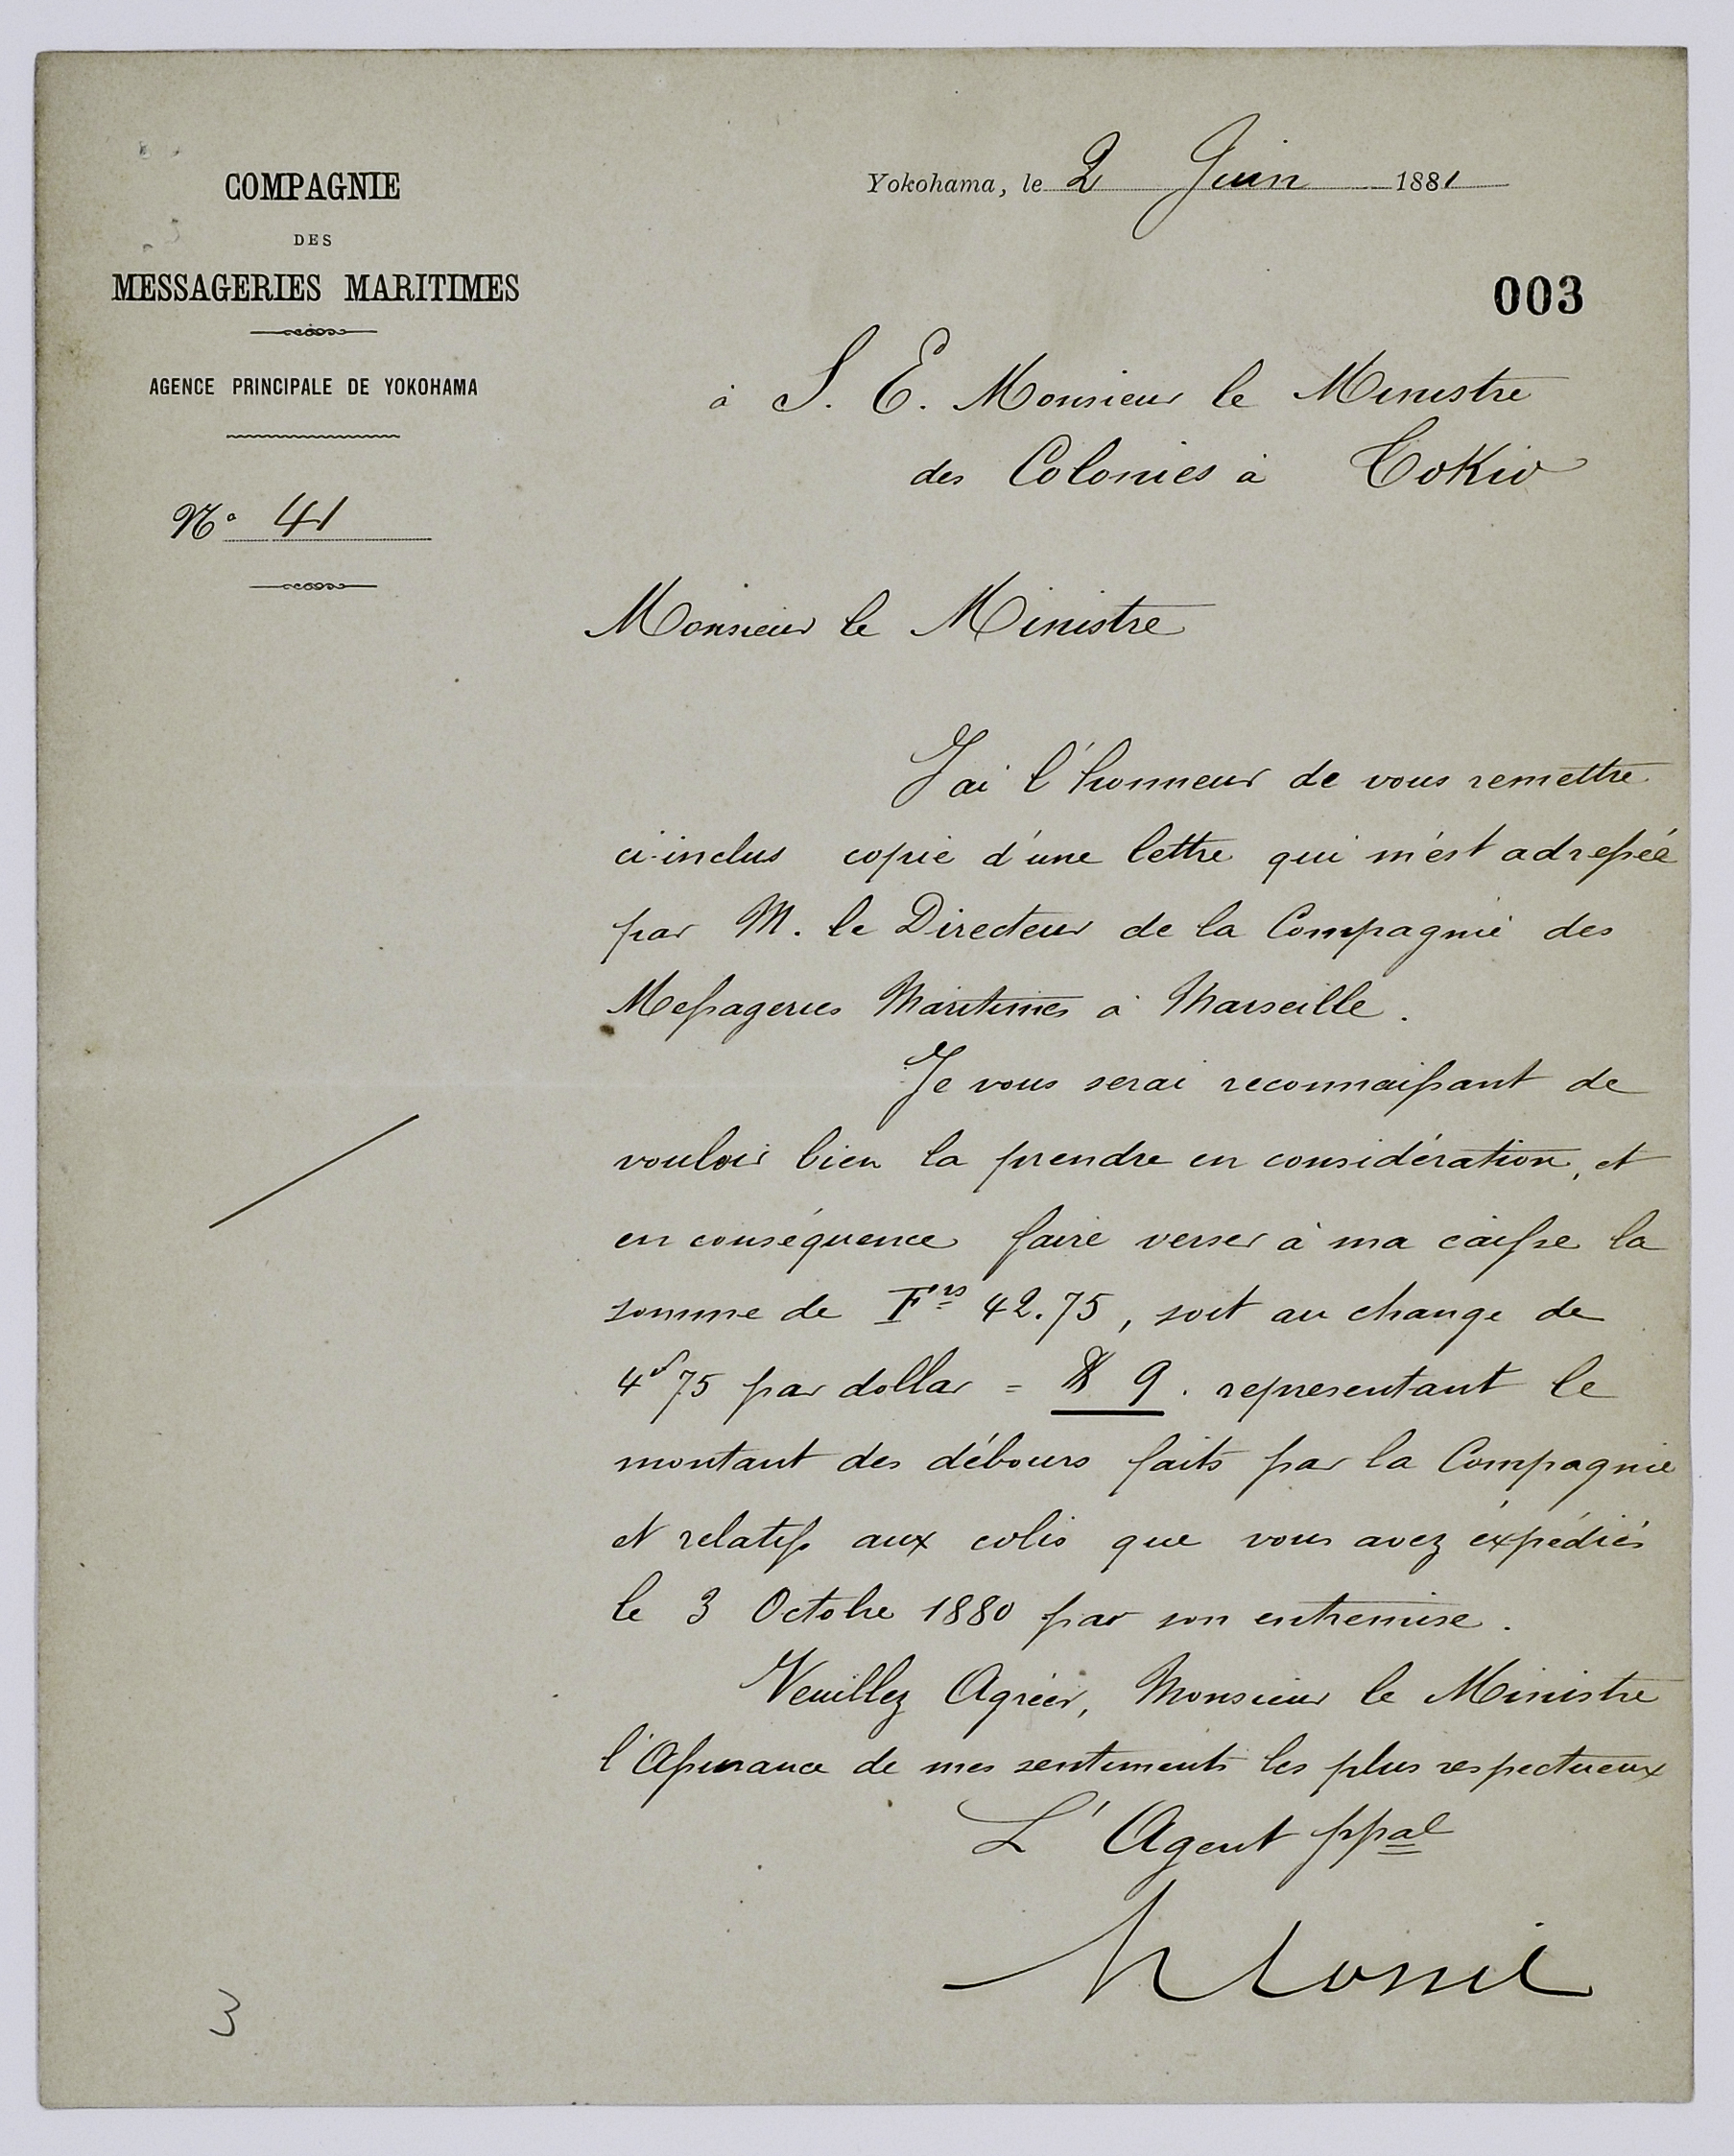 COMPAGNIE
DES
MESSAGERIES MARITIMES
AGENCE PRINCIPALE DE YOKOHAMA
N° 41
Yokohama, le 2 Juin 1881
003
à S. E. Monsieur le Ministre
des Colonies à Tokio
Monsieur le Ministre
J'ai l'honneur de vous remettre
ci-inclus copie d'une lettre qui m'est adressée
par M. le Directeur de la Compagnie des
Messageries Maritimes à Marseille.
Je vous serai reconnaissant de
vouloir bien la prendre en considération, et
en conséquence faire verser à ma caisse la
somme de Frs 42.75, soit au change de
4f75 par dollar = $ 9. representant le
montant des débours faits par la Compagnie
et relatifs aux colis que vous avez éxpédiés
le 3 Octobre 1880 par son entremise.
Veuillez Agréer, Monsieur le Ministre
l'Assurance de mes sentiments les plus respectueux
L'Agent ppal
3